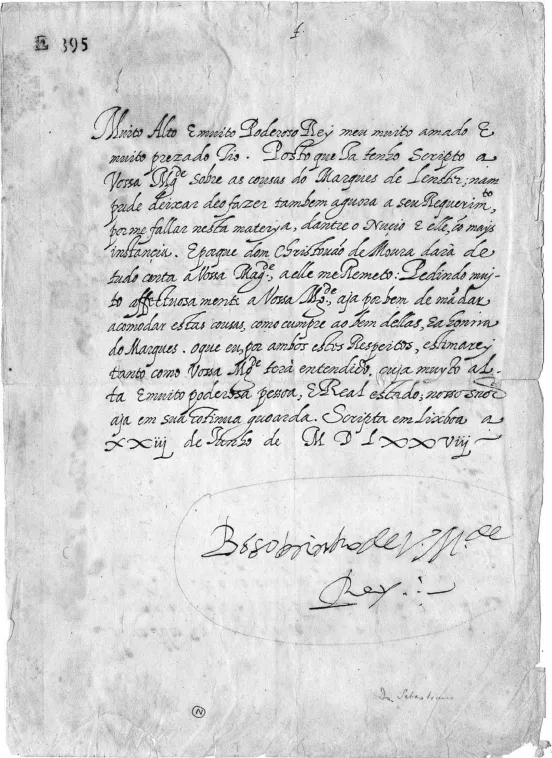 E 395
Muito Alto E muito Poderoso Rey meu muito amado E
muito prezado Tio. Posto que Ja tenho Scripto a
Vossa Mg.de sobre as cousas do Marques de Lenstr; nam
pude deixar deo fazer tambem aguora a seu Requerim.to
por me fallar nesta materya, dantre o Nucio E elle, co mays
instançia. E porque dom Christouão de Moura dara de
tudo conta a Vossa Mag.de, a elle me Remeto: Pedindo muj-
to affectuosa mente a Vossa Mg.de, aja por bem de mãdar
acomodar estas cousas, como cumpre ao bem dellas, E a honrra
do Marques. o que eu, por ambos estes Respeitos, estimarey
tanto como Vossa Mg.de terà entendido, cuja muyto al-
ta E muito poderosa pessoa, E Real estado, nosso snõr
aja em sua cõtinua guoarda. Scripta em Lixboa a
XXiiij de Junho de M D L XXViij
Bõ sobrinho de V. M.de
Rey
Dn Sebastian
N